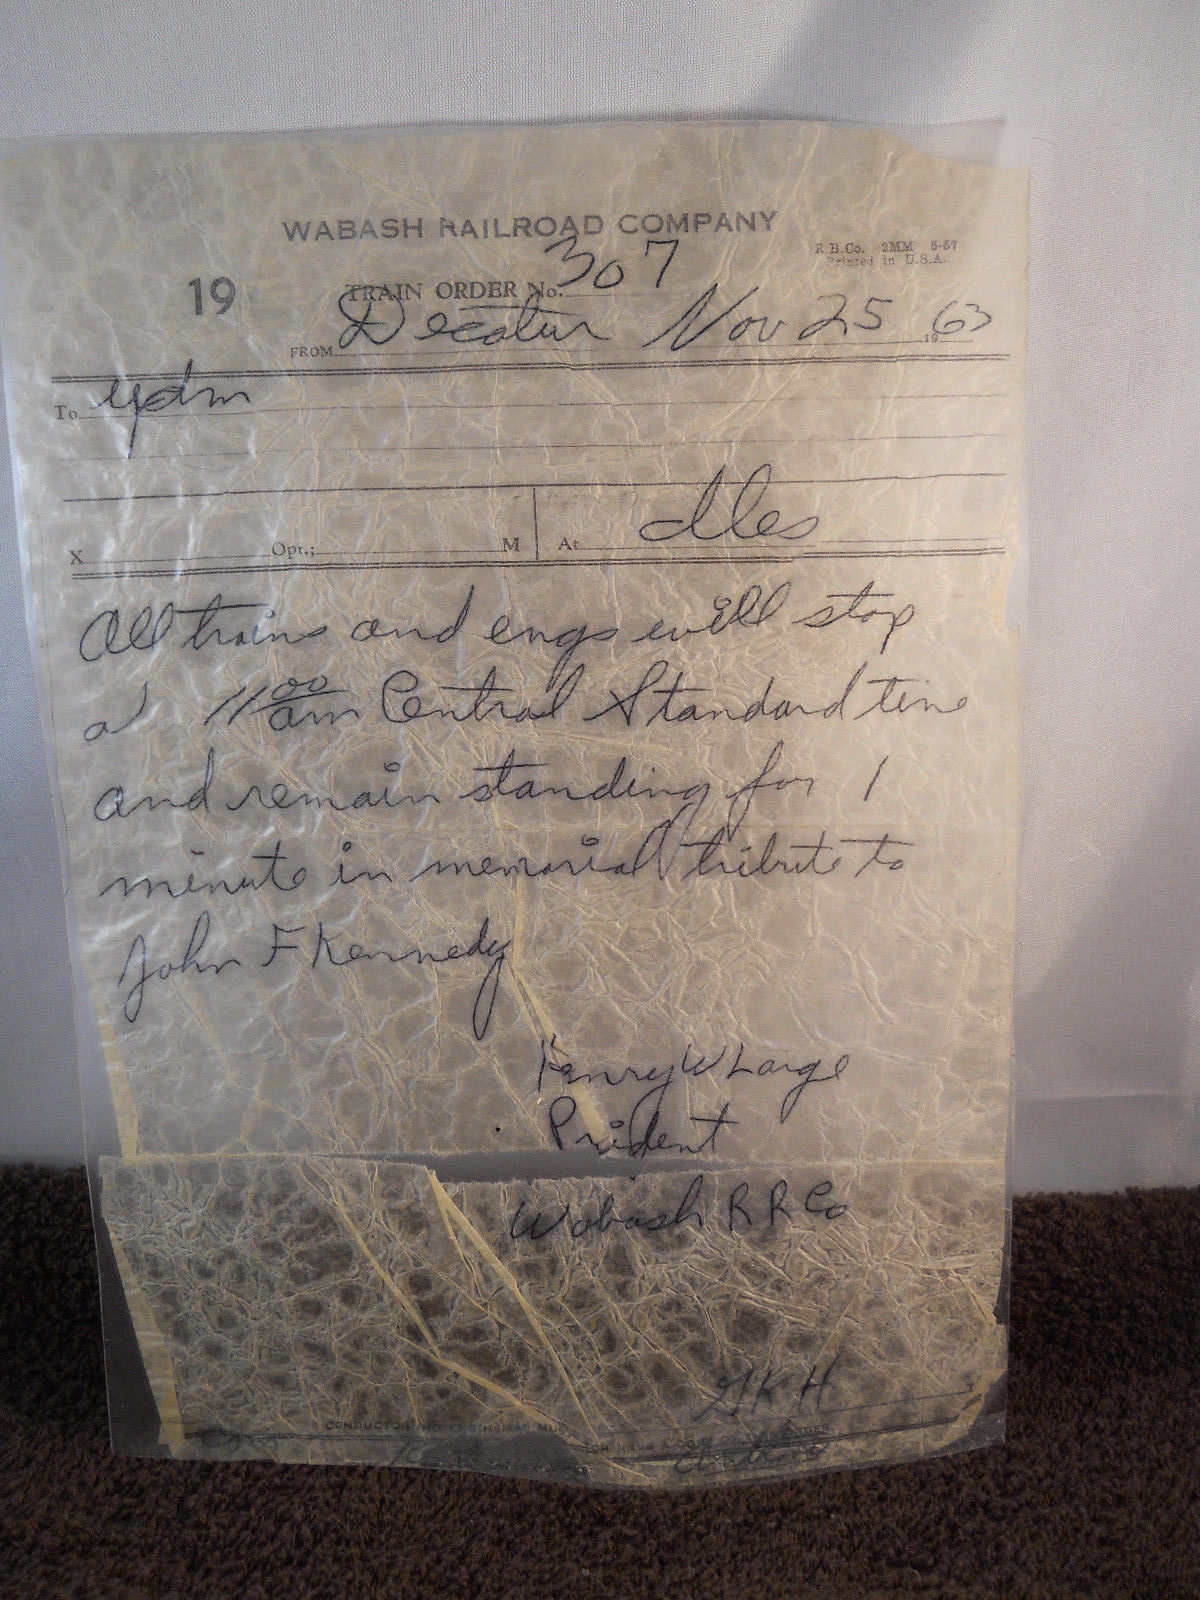 WABASH RAILROAD COMPANY
R.B.Co. 2MM 5-57
Printed in U.S.A.
19
TRAIN ORDER No. 307
FROM Decatur Nov 25 1963
To ydm
X Opr.; M At dles
All trains and engs will stop
at 11 00 am Central Standard time
and remain standing for 1
minute in memorial tribute to
John F Kennedy
Henry W Large
Prident
Wabash R R Co
GKH